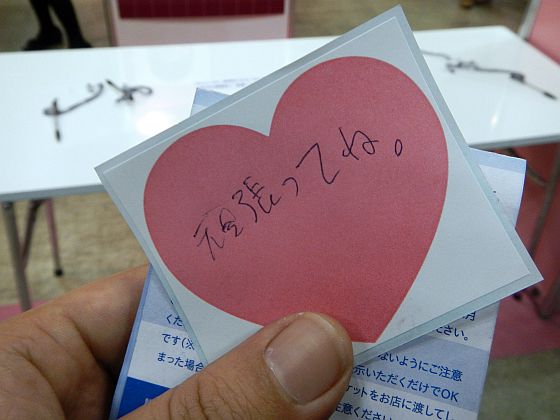 頑張ってね。
月
ください。
です(※
ないようにご注意
まった場合
示いただくだけでOK
ケットをお店に渡してし
注意ください